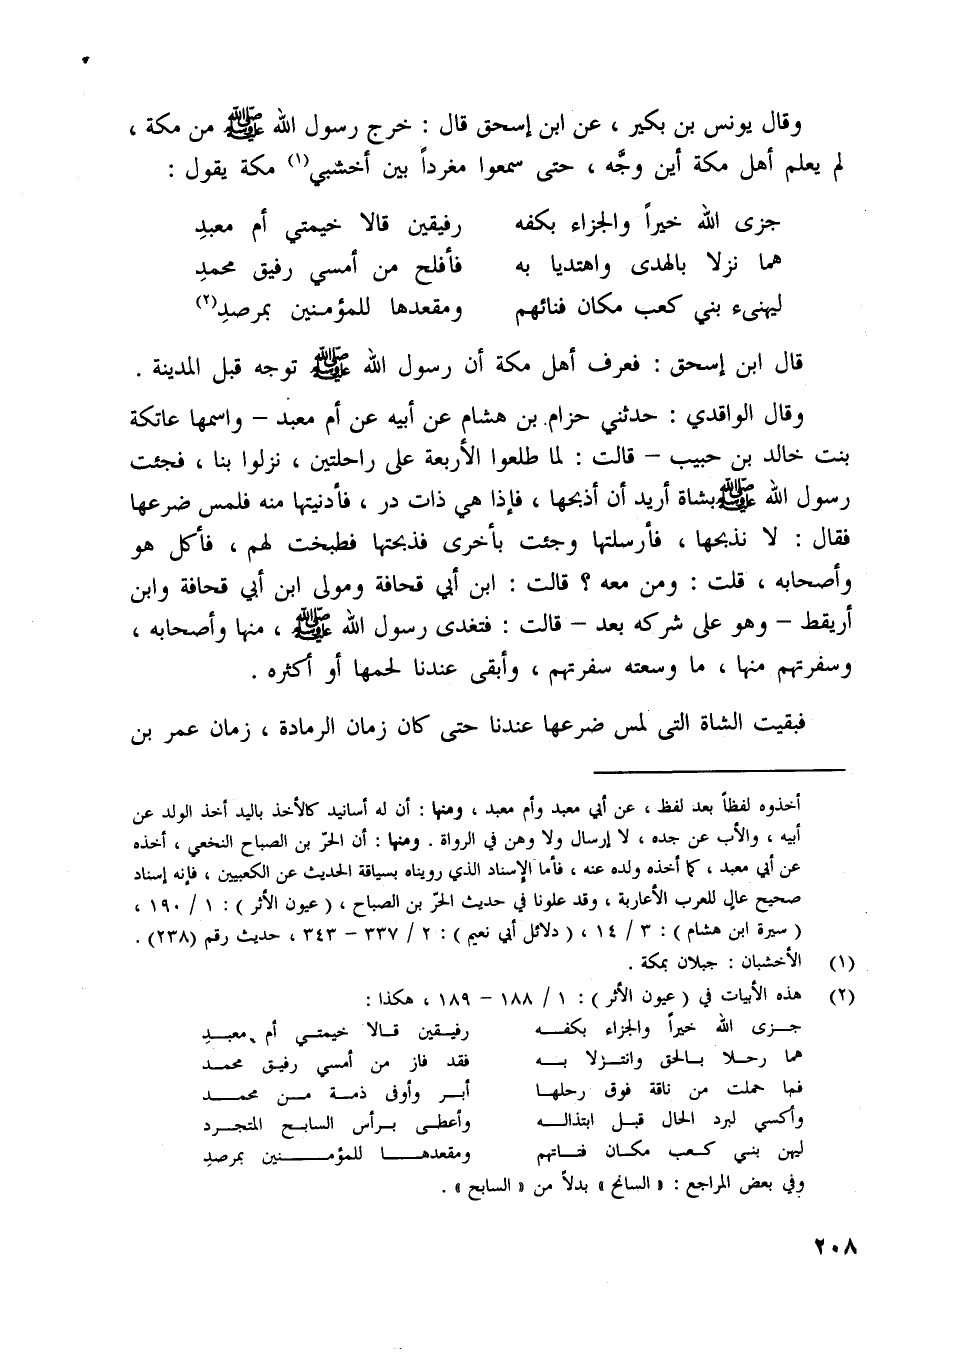 وقال يونس بن بكير ، عن ابن إسحق قال : خرج رسول الله ﷺ من مكة ،
لم يعلم أهل مكة أين وجَّه ، حتى سمعوا مغرداً بين أخشبي(١) مكة يقول :
جزى الله خيراً والجزاء بكفه رفيقين قالا خيمتي أم معبدِ
هما نزلا بالهدى واهتديا به فأفلح من أمسي رفيق محمدِ
ليهنىء بني كعب مكان فنائهم ومقعدها للمؤمنين بمرصدِ(٢)
قال ابن إسحق : فعرف أهل مكة أن رسول الله ﷺ توجه قبل المدينة .
وقال الواقدي : حدثني حزام بن هشام عن أبيه عن أم معبد – واسمها عاتكة
بنت خالد بن حبيب – قالت : لما طلعوا الأربعة على راحلتين ، نزلوا بنا ، فجئت
رسول الله ﷺ بشاة أريد أن أذبحها ، فإذا هي ذات در ، فأدنيتها منه فلمس ضرعها
فقال : لا نذبحها ، فأرسلتها وجئت بأخرى فذبحتها فطبخت لهم ، فأكل هو
وأصحابه ، قلت : ومن معه ؟ قالت : ابن أبي قحافة ومولى ابن أبي قحافة وابن
أريقط – وهو على شركه بعد – قالت : فتغدى رسول الله ﷺ ، منها وأصحابه ،
وسفرتهم منها ، ما وسعته سفرتهم ، وأبقى عندنا لحمها أو أكثره .
فبقيت الشاة التي لمس ضرعها عندنا حتى كان زمان الرمادة ، زمان عمر بن
أخذوه لفظاً بعد لفظ ، عن أبي معبد وأم معبد ، ومنها : أن له أسانيد كالأخذ باليد أخذ الولد عن
أبيه ، والأب عن جده ، لا إرسال ولا وهن في الرواة . ومنها : أن الحرّ بن الصباح النخعي ، أخذه
عن أبي معبد ، كما أخذه ولده عنه ، فأما الإسناد الذي رويناه بسياقة الحديث عن الكعبيين ، فإنه إسناد
صحيح عالٍ للعرب الأعاربة ، وقد علونا في حديث الحرّ بن الصباح ، ( عيون الأثر ) : ١ / ١٩٠ ،
( سيرة ابن هشام ) : ٣ / ١٤ ، ( دلائل أبي نعيم ) : ٢ / ٣٣٧ – ٣٤٣ ، حديث رقم (٢٣٨) .
(١) الأخشبان : جبلان بمكة .
(٢) هذه الأبيات في ( عيون الأثر ) : ١ / ١٨٨ – ١٨٩ ، هكذا :
جـزى الله خيراً والجزاء بكفـه رفيـقين قـالا خيمتـي أم معبـدِ
هما رحـلا بـالحق وانتـزلا بـه فقد فاز من أمسي رفيـق محمـد
فما حملت من ناقة فوق رحلهـا أبـر وأوفى ذمـة مـن محمـد
وأكسي لبرد الحال قبـل ابتذالـه وأعطـى بـرأس السابـح المتجـرد
ليهن بنـي كـعب مكـان فتـاتهم ومقعدهـا للمؤمـنين بمرصدِ
وفي بعض المراجع : « السائح » بدلاً من « السابح » .
٢٠٨